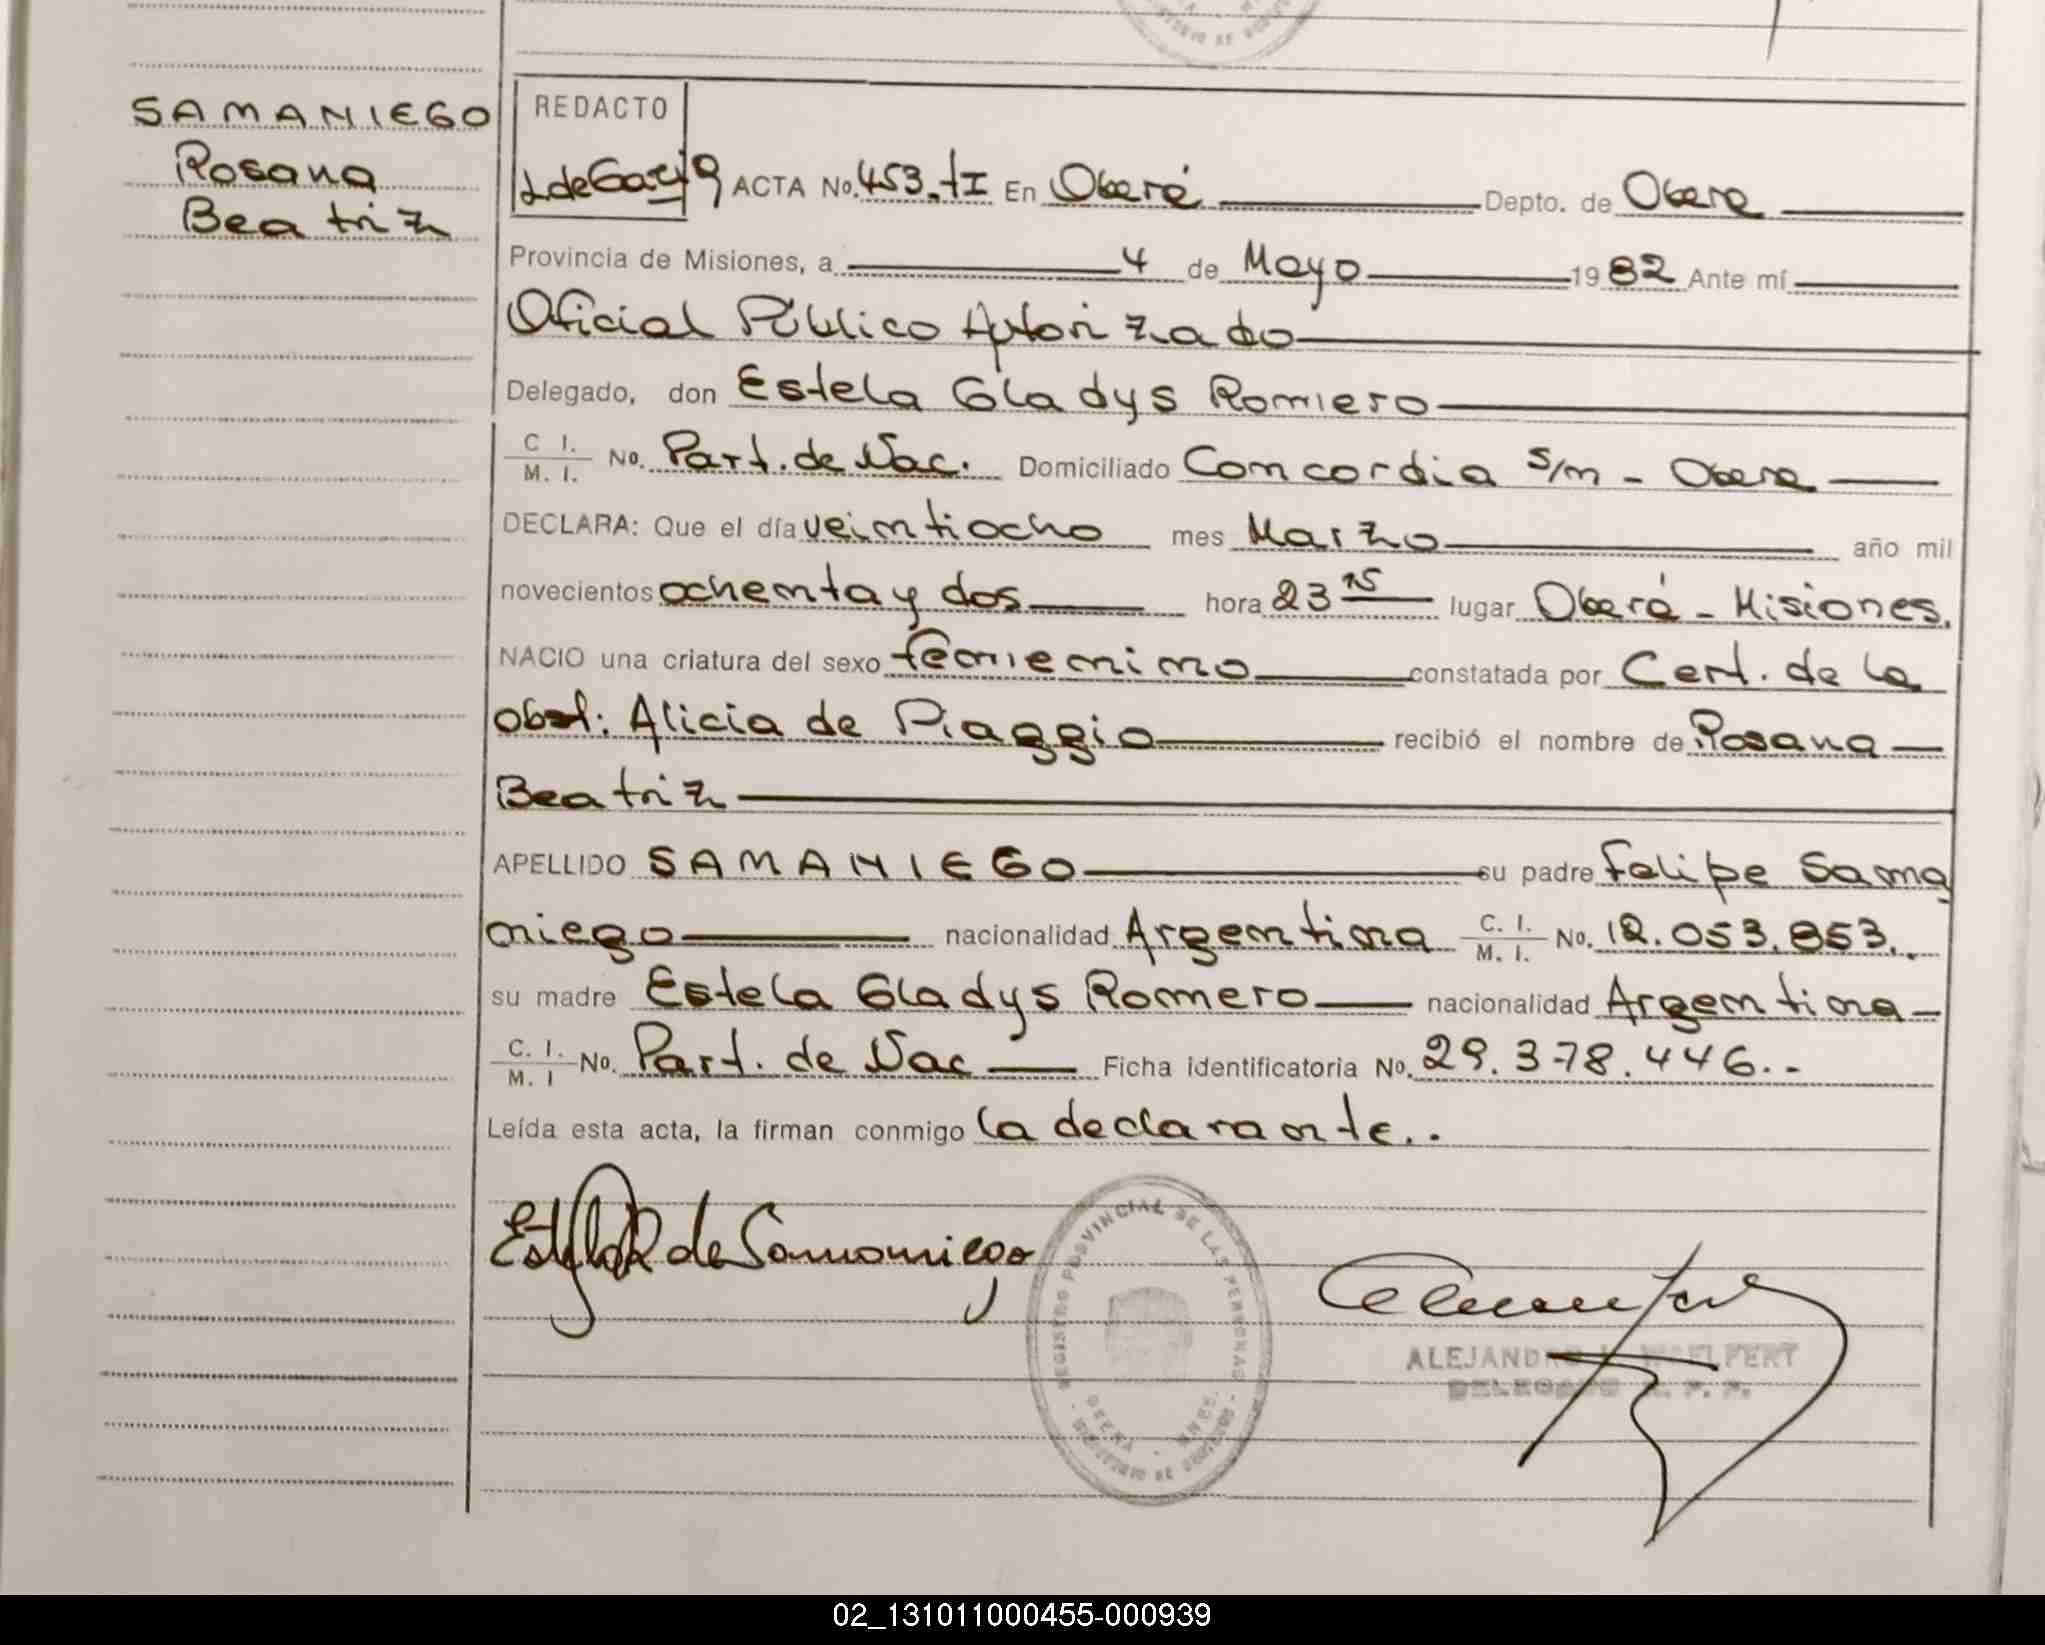 SAMANIEGO
Rosana
Beatriz
REDACTO
ACTA No. 453.tI En Oberá Depto. de Obera
Provincia de Misiones, a 4 de Mayo 1982 Ante mí
Oficial Público Autorizado
Delegado, don Estela Gladys Romero
C I. / M. I. No. Part. de Nac. Domiciliado Concordia s/n - Obera
DECLARA: Que el día veintiocho mes Marzo año mil
novecientos ochenta y dos hora 23 15 lugar Oberá - Misiones.
NACIO una criatura del sexo femenino constatada por Cert. de la
obst. Alicia de Piaggio recibió el nombre de Rosana
Beatriz
APELLIDO SAMANIEGO su padre Felipe Sama
niego nacionalidad Argentina C. I. / M. I. No. 12.053.853.
su madre Estela Gladys Romero nacionalidad Argentina
C. I. / M. I No. Part. de Nac Ficha identificatoria No. 29.378.446..-
Leída esta acta, la firman conmigo la declarante..
de Samaniego
REGISTRO PROVINCIAL DE LAS PERSONAS
OBERA - MNES.
ALEJANDRO
DELEGADO R. P. P.
02_131011000455-000939